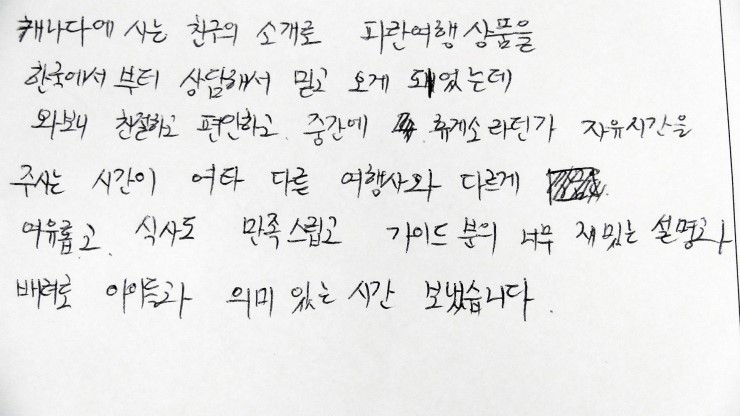 캐나다에 사는 친구의 소개로 파란여행 상품을
한국에서 부터 상담해서 믿고 오게 돼었는데
와보니 친절하고 편안하고 중간에 휴게소 라던가 자유시간을
주시는 시간이 여타 다른 여행사와 다르게
여유롭고 식사도 만족스럽고 가이드 분의 너무 재밌는 설명과
배려로 아이들과 의미 있는 시간 보냈습니다.